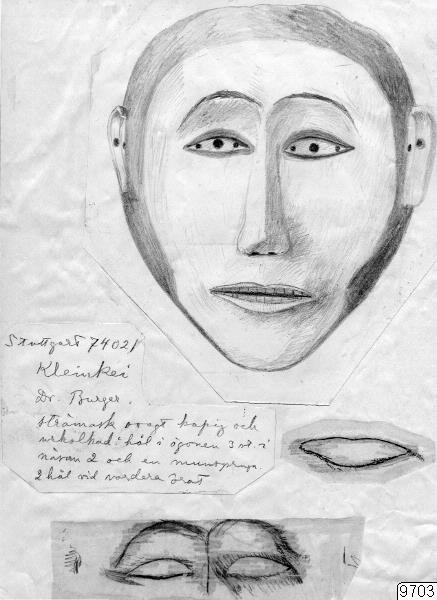 Stuttgart 74021
Kleinkei
Dr. Burger.
trämask ovagt kupig och
urholkad: hål i ögonen 3 st. i
näsan 2 och en munspringa.
2 hål vid vardera örat
9703